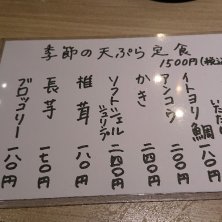 季節の天ぷら定食
1500円(税込
イトヨリ鯛 一八〇円
アンコウ 二四〇円
かき 二四〇円
ソフトシェルシュリンプ 二四〇円
椎茸 一八〇円
長芋 一七〇円
ブロッコリー 一八〇円